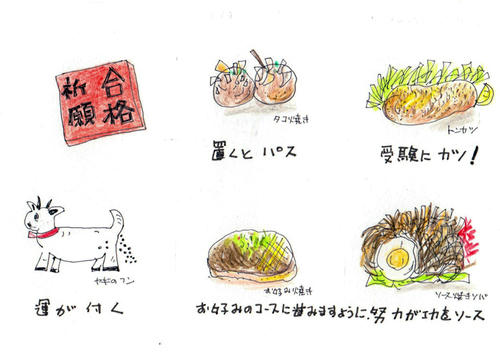 合格
祈願
タコ焼き
置くと パス
トンカツ
受験に カツ!
ヤギのフン
運が 付く
お好み焼き
ソース焼きソバ
お好みのコースに進みますように、努力が功をソース